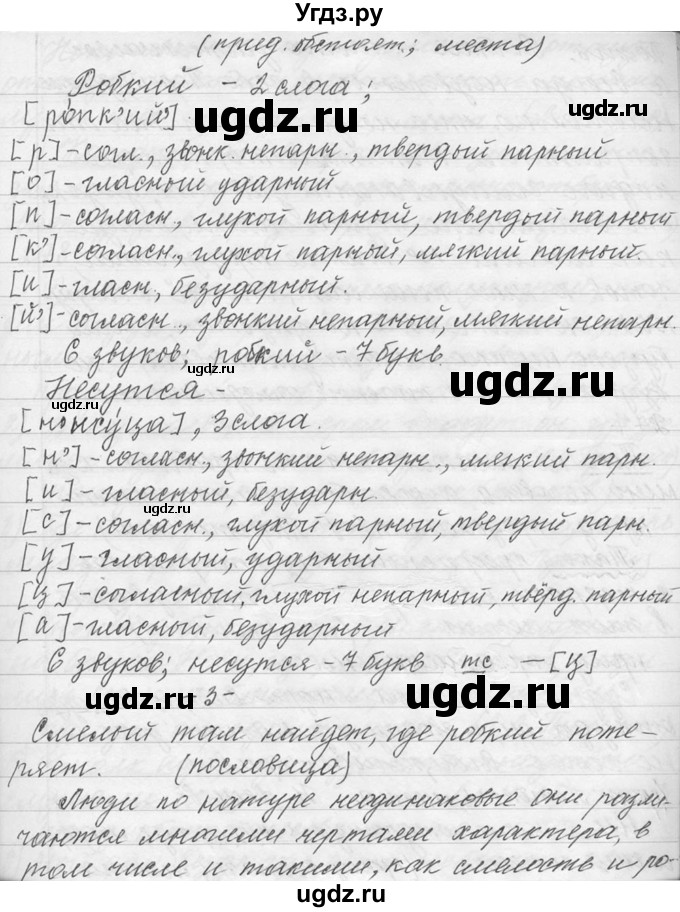 Угдз.ру
(прид. обстоят.; места)
Робкий - 2 слога;
[ропк'ий']
[р]-согл., звонк. непарн., твердый парный
[о]-гласный ударный
[п]-согласн., глухой парный, твердый парный
[к']-согласн., глухой парный, мягкий парный.
[и]-гласн., безударный.
[й']-согласн., звонкий непарный, мягкий непарн.
6 звуков; робкий - 7 букв.
Несутся -
[н'ису́ца], 3 слога.
[н']-согласн., звонкий непарн., мягкий парн.
[и]-гласный, безударн.
[с]-согласн., глухой парный, твердый парн.
[у]-гласный, ударный
[ц]-согласный, глухой непарный, твёрд. парный
[а]-гласный, безударный
6 звуков; несутся - 7 букв тс - [ц]
-3-
Смелый там найдет, где робкий поте-
ряет. (пословица)
Люди по натуре неодинаковые они разли-
чаются многими чертами характера, в
том числе и такими, как смелость и ро-
ugdz.ru
ugdz.ru
ugdz.ru
ugdz.ru
ugdz.ru
ugdz.ru
ugdz.ru
ugdz.ru
ugdz.ru
ugdz.ru
ugdz.ru